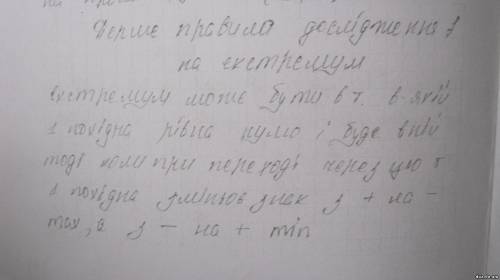 Перше правила дослідження f
на екстремум
екстремум може бути в т. в якій
1 похідна рівна нулю і буде в ній
тоді коли при переході через цю т
1 похідна змінює знак з + на -
max, а з - на + min